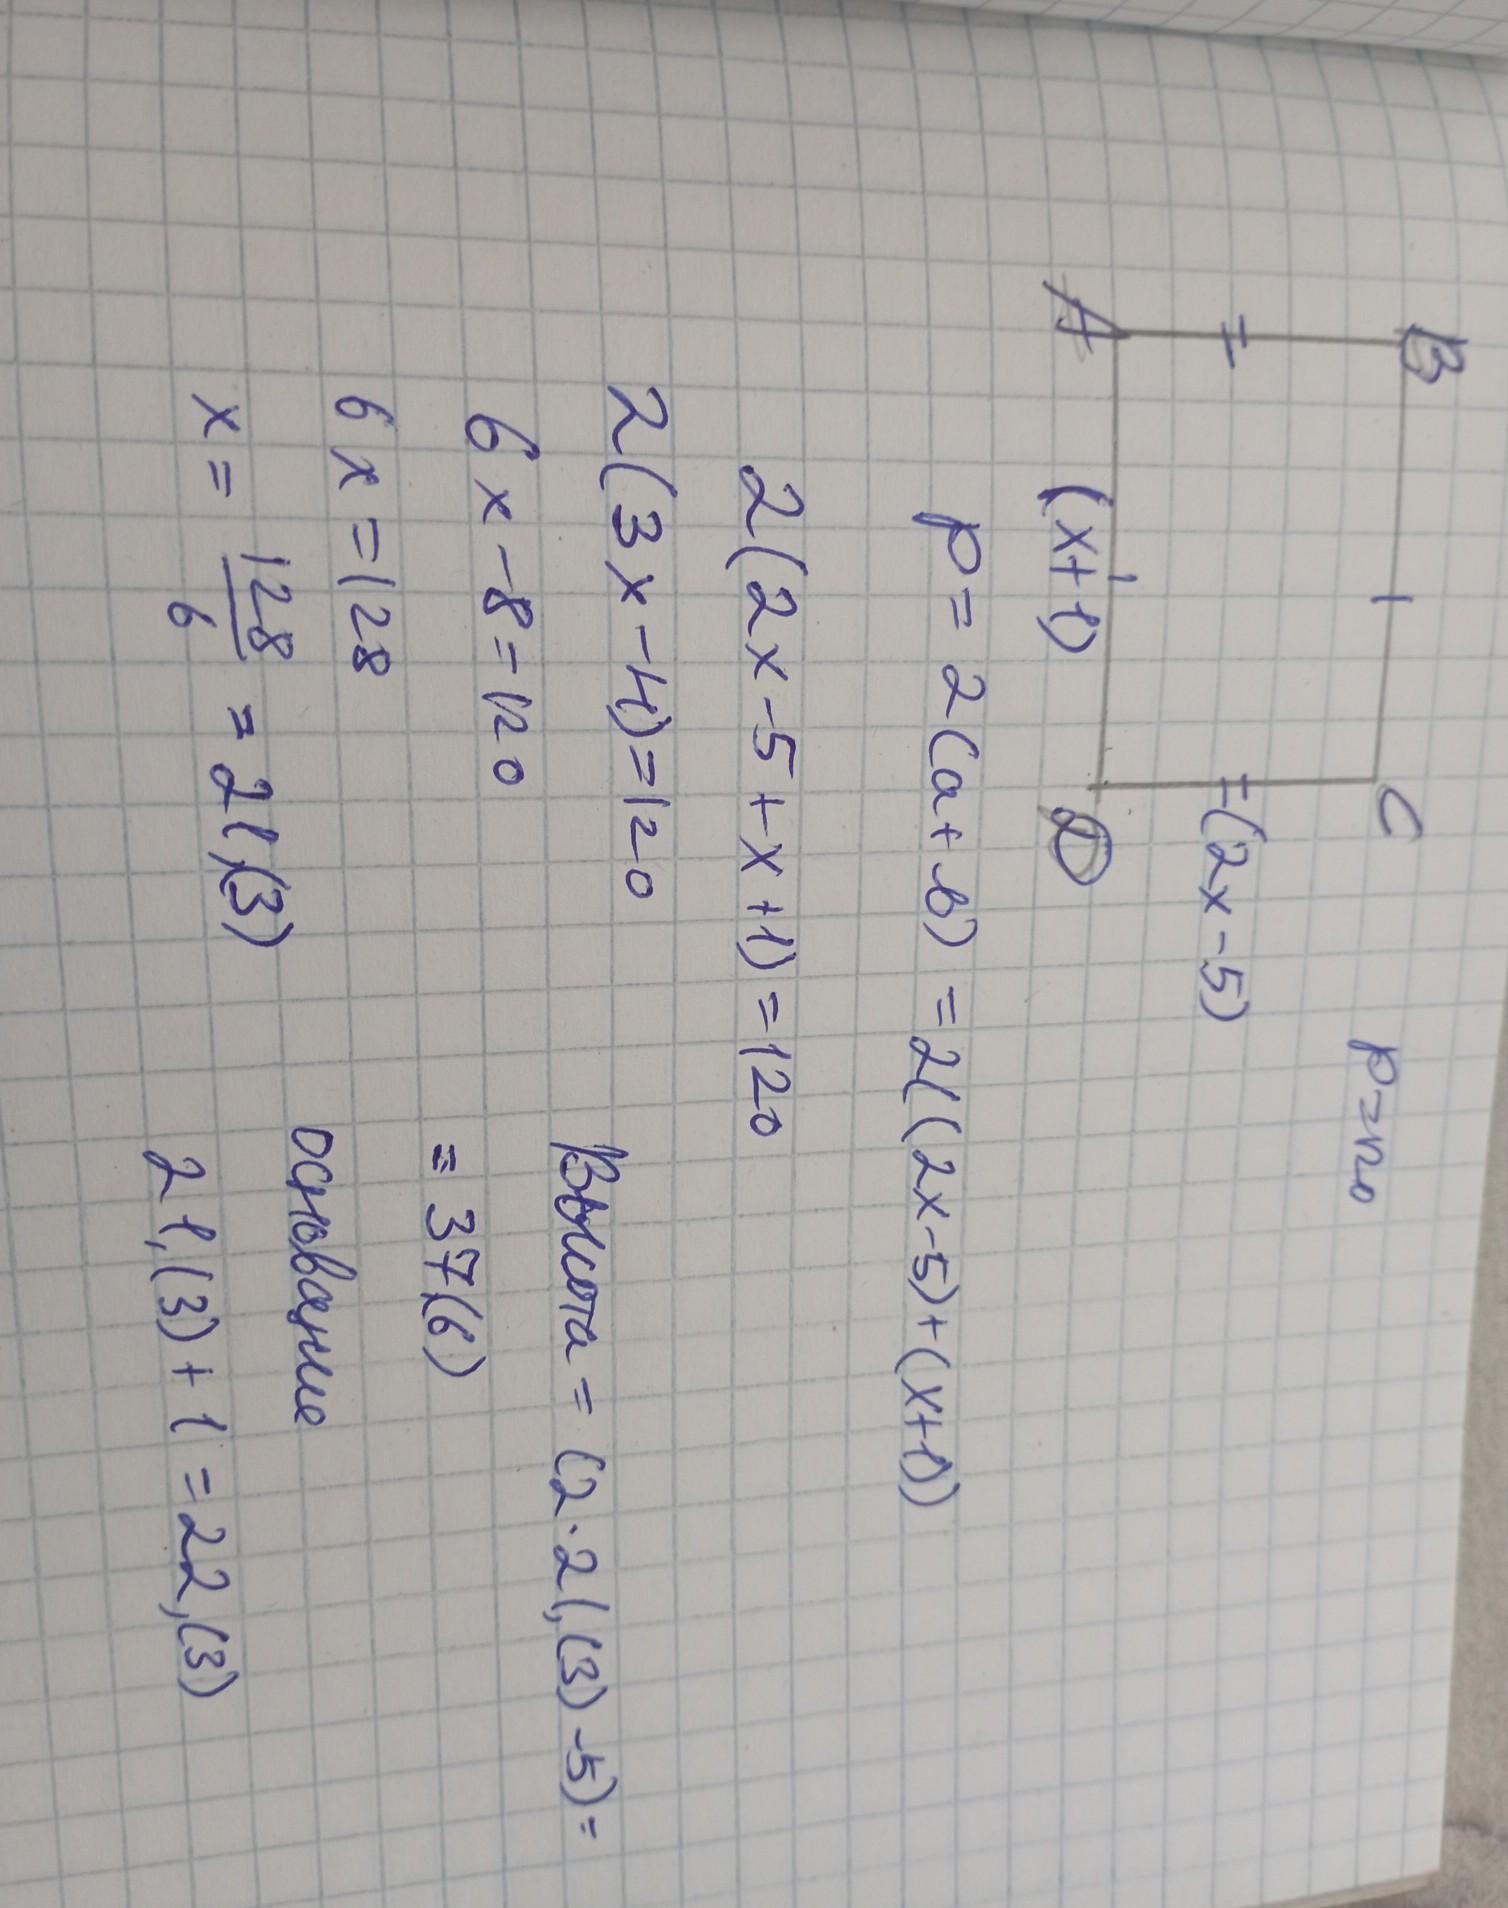 B
C
p=120
=(2x-5)
A
D
(x+1)
p = 2(a+b) = 2((2x-5)+(x+1))
2(2x-5+x+1)=120
2(3x-4)=120
6x-8=120
6x=128
x = 128/6 = 21,(3)
Высота = (2·21,(3)-5)=
= 37,(6)
основание
21,(3)+1=22,(3)